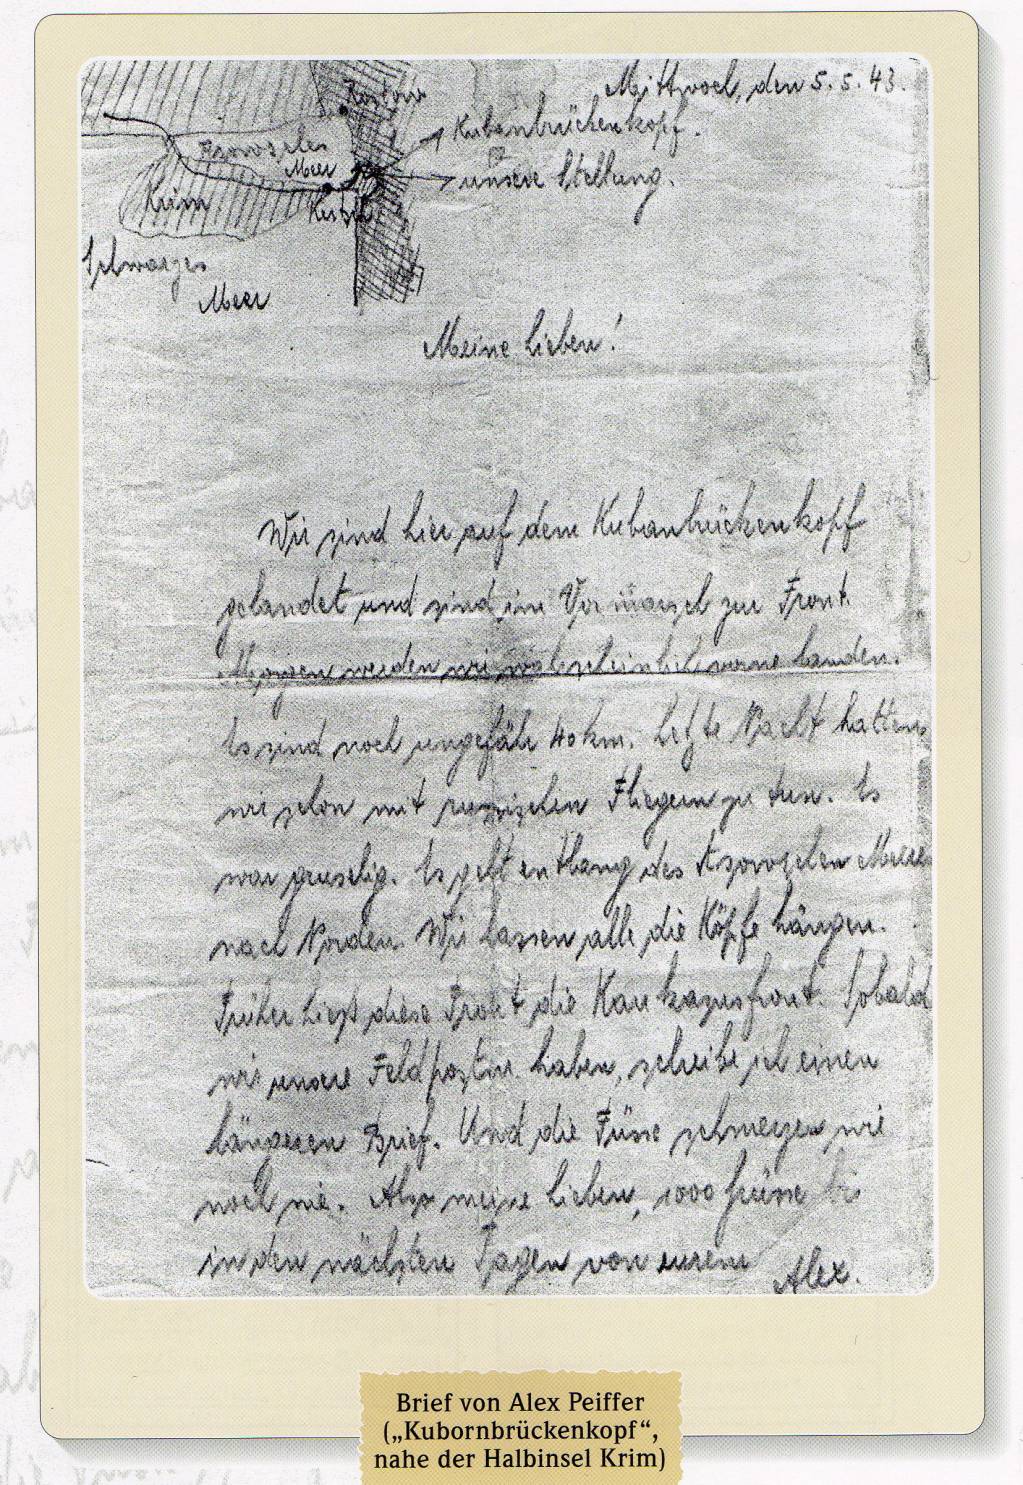 Mittwoch, den 5.5.43.
Rostow
Kubanbrückenkopf.
unsere Stellung.
Asowsches
Meer
Krim
Kertsch
Schwarzes
Meer
Meine Lieben!
Wir sind hier auf dem Kubanbrückenkopf
gelandet und sind im Vormarsch zur Front.
Morgen werden wir wahrscheinlich vorne landen.
Es sind noch ungefähr 40 km. Letzte Nacht hatten
wir schon mit russischen Fliegern zu tun. Es
war gruselig. Es geht entlang des Asowschen Meeres
nach Norden. Wir lassen alle die Köpfe hängen.
Früher hiess diese Front die Kaukasusfront. Sobald
wir unsere Feldpostnr. haben, schreibe ich einen
längeren Brief. Und die Füsse schmerzen wie
noch nie. Also meine Lieben, 1000 Grüsse bis
in den nächsten Tagen von eurem
Alex.
Brief von Alex Peiffer
(„Kubornbrückenkopf“,
nahe der Halbinsel Krim)